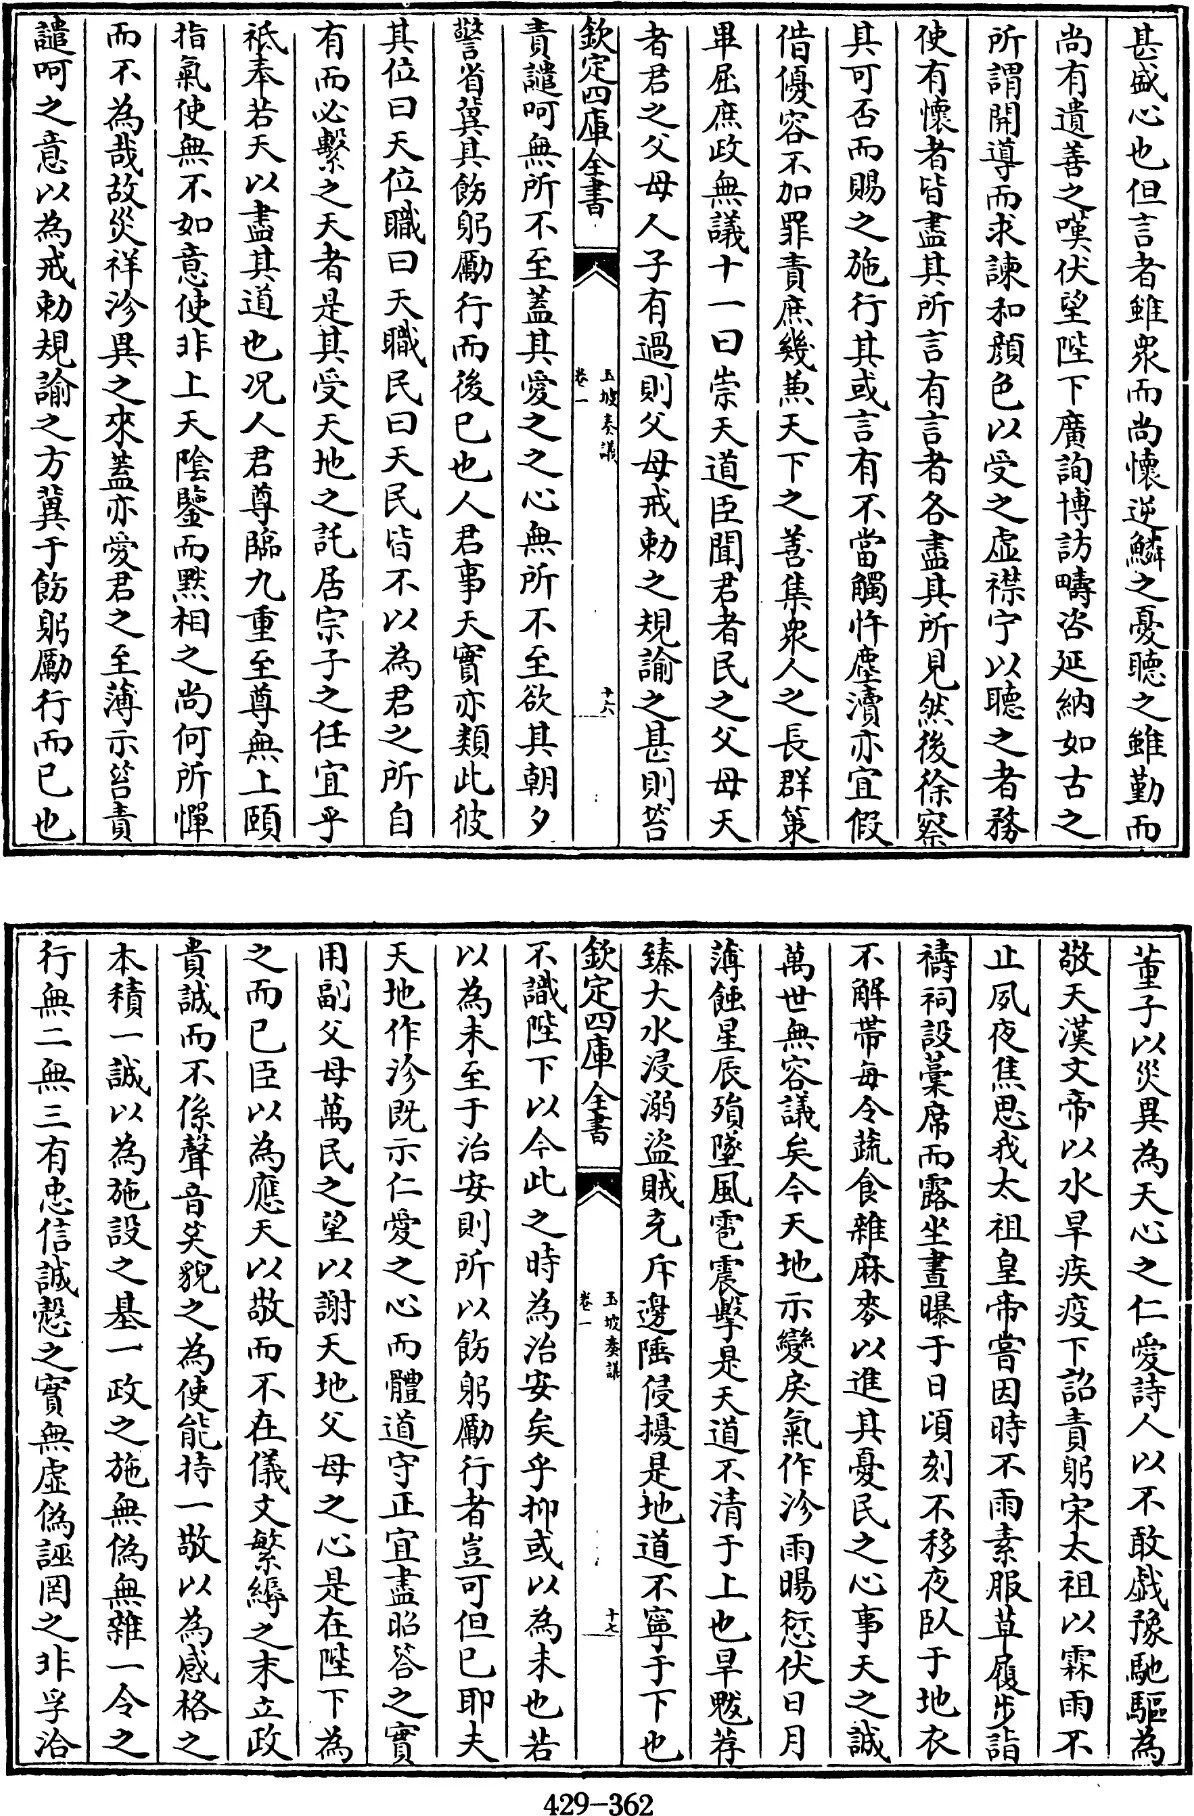 甚盛心也但言者雖衆而尚懷逆鱗之憂聽之雖勤而
尚有遺善之嘆伏望陛下廣詢博訪疇咨延納如古之
所謂開導而求諫和顔色以受之虚襟宁以聽之者務
使有懷者皆盡其所言有言者各盡其所見然後徐察
其可否而賜之施行其或言有不當觸忤塵瀆亦宜假
借優容不加罪責庶幾兼天下之善集衆人之長群策
畢屈庶政無議十一曰崇天道臣聞君者民之父母天
者君之父母人子有過則父母戒勅之規諭之甚則笞
欽定四庫全書
玉坡奏議
卷一
十六
責譴呵無所不至蓋其愛之之心無所不至欲其朝夕
警省冀其飭躬勵行而後已也人君事天實亦類此彼
其位曰天位職曰天職民曰天民皆不以為君之所自
有而必繫之天者是其受天地之託居宗子之任宜乎
祗奉若天以盡其道也况人君尊臨九重至尊無上頤
指氣使無不如意使非上天陰鑒而黙相之尚何所憚
而不為哉故災祥沴異之來蓋亦愛君之至薄示笞責
譴呵之意以為戒勅規諭之方冀于飭躬勵行而已也
董子以災異為天心之仁愛詩人以不敢戯豫馳驅為
敬天漢文帝以水旱疾疫下詔責躬宋太祖以霖雨不
止夙夜焦思我太祖皇帝嘗因時不雨素服草履步詣
禱祠設藁席而露坐晝曝于日頃刻不移夜臥于地衣
不解帶每令蔬食雜麻麥以進其憂民之心事天之誠
萬世無容議矣今天地示變戾氣作沴雨暘愆伏日月
薄蝕星辰殞墜風雹震擊是天道不清于上也旱魃荐
臻大水浸溺盜賊充斥邊陲侵擾是地道不寧于下也
欽定四庫全書
玉坡奏議
卷一
十七
不識陛下以今此之時為治安矣乎抑或以為未也若
以為未至于治安則所以飭躬勵行者豈可但已耶夫
天地作沴既示仁愛之心而體道守正宜盡昭答之實
用副父母萬民之望以謝天地父母之心是在陛下為
之而已臣以為應天以敬而不在儀文繁縟之末立政
貴誠而不係聲音笑貌之為使能持一敬以為感格之
本積一誠以為施設之基一政之施無偽無雜一令之
行無二無三有忠信誠慤之實無虚偽誣罔之非孚洽
429-362